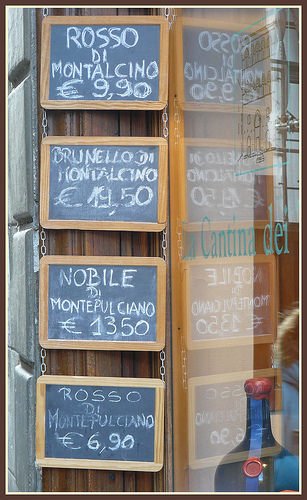 ROSSO
DI
MONTALCINO
€ 9,90
BRUNELLO DI
MONTALCINO
€ 19,50
NOBILE
DI
MONTEPULCIANO
€ 1350
ROSSO
DI
MONTEPULCIANO
€ 6,90
La Cantina dei